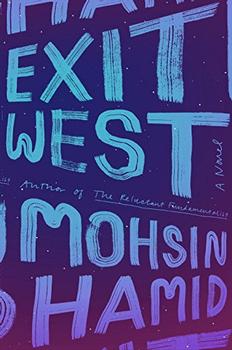 HAMI
EXIT
WEST
A Novel
Author of The Reluctant Fundamentalist
MOHSIN
HAMID